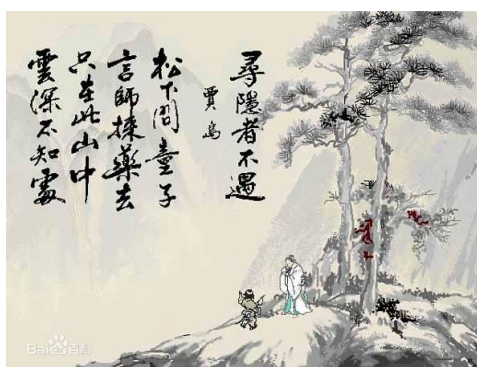 尋隱者不遇
賈島
松下問童子
言師採藥去
只在此山中
雲深不知處
Baidu百科